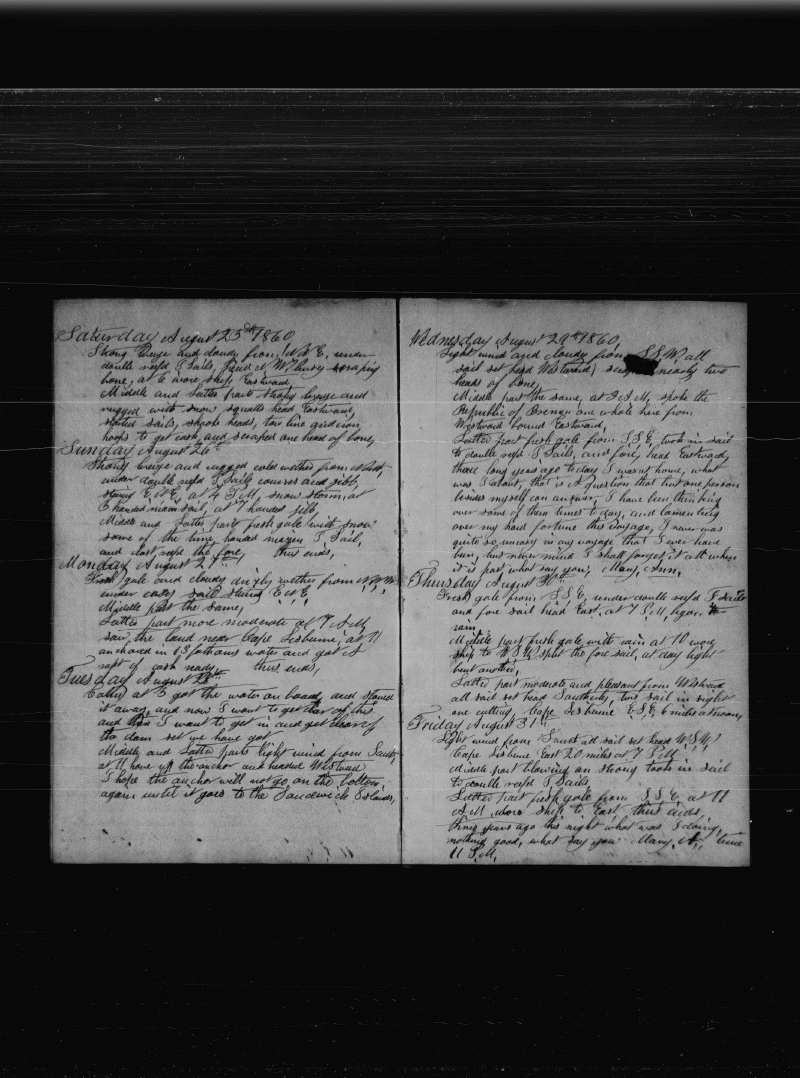 Saturday August 25th 1860
Strong breize and cloudy from N N E, under
double reefd T Sails, head N W, busy scraping
bone, at 6 wore ship Eastward,
Middle and Latter parts strong breize and
rugged with snow squalls head Eastward,
shifted sails, shooks heads, tow line and iron
hoops to get cask, and scraped one head of bone,
Sunday August 26th
Strong breize and rugged cold wether from
under double reefd T Sails courses and jibb,
stering E N E, at 4 P M, snow storm, at
6 handed main sail, at 7 handed jibb,
Middle and Latter parts fresh gale with snow
some of the time, handed mizen T Sail,
and close reefd the fore, thus ends,
Monday August 27th
Fresh gale and cloudy drizly wether from N N W
under easy sail stering E N E
Middle part the same,
Latter part more moderate at 7 A M,
saw the land near Cape Lisburne, at 11
anchored in 13 fathoms water and got A
raft of cask ready, thus ends,
Tuesday August 28th
Calm, at 6 got the water on board, and stowed
it away, and now I want to get clear of this
and I want to get in and get clear of
the dam set we have got
Middle and Latter parts light wind from South,
at 11 hove up the anchor and headed Westward
I hope the anchor will not go on the bottom
again until it goes to the Sandwich Islands,
Wednesday August 29th 1860,
Light wind and cloudy from S S W, all
sail set head Westward, nearly two
heads of bone,
Middle part the same, at 3 A M, spoke the
Republic of Bremen one whale here from
Westward bound Eastward,
Latter part fresh gale from S S E, took in sail
to double reefd T Sails, and fore, head Eastward,
three long years ago to day I was at home, what
was I about, that is A question that but one person
besides myself can answer, I have been thinking
over some of them times to day, and lamenting
over my hard fortune this voyage, I never was
quite so uneasy in any voyage that I ever have
been, but never mind I shall forget it all when
it is past, what say you, Mary, Ann,
Thursday August 30th
Fresh gale from S S E, under double reefd T Sails
and fore sail head East, at 7 P M, began to
rain
Middle part fresh gale with rain at 10 wore
ship to W S W, split the fore sail, at day light
bent another,
Latter part moderate and pleasant from Westward
all sail set head Southerly, two sail in sight
one cutting, Cape Lisburne E S E 6 miles at noon,
Friday August 31st
Light wind from South all sail set head W S W
Cape Lisburne East 20 miles at 7 P M
Middle part blowing on strong took in sail
to double reefd T Sails
Latter part fresh gale from S S E at 11
A M wore ship to East thus ends,
three years ago this night what was I doing,
nothing good, what say you Mary, A, time
11 P M,